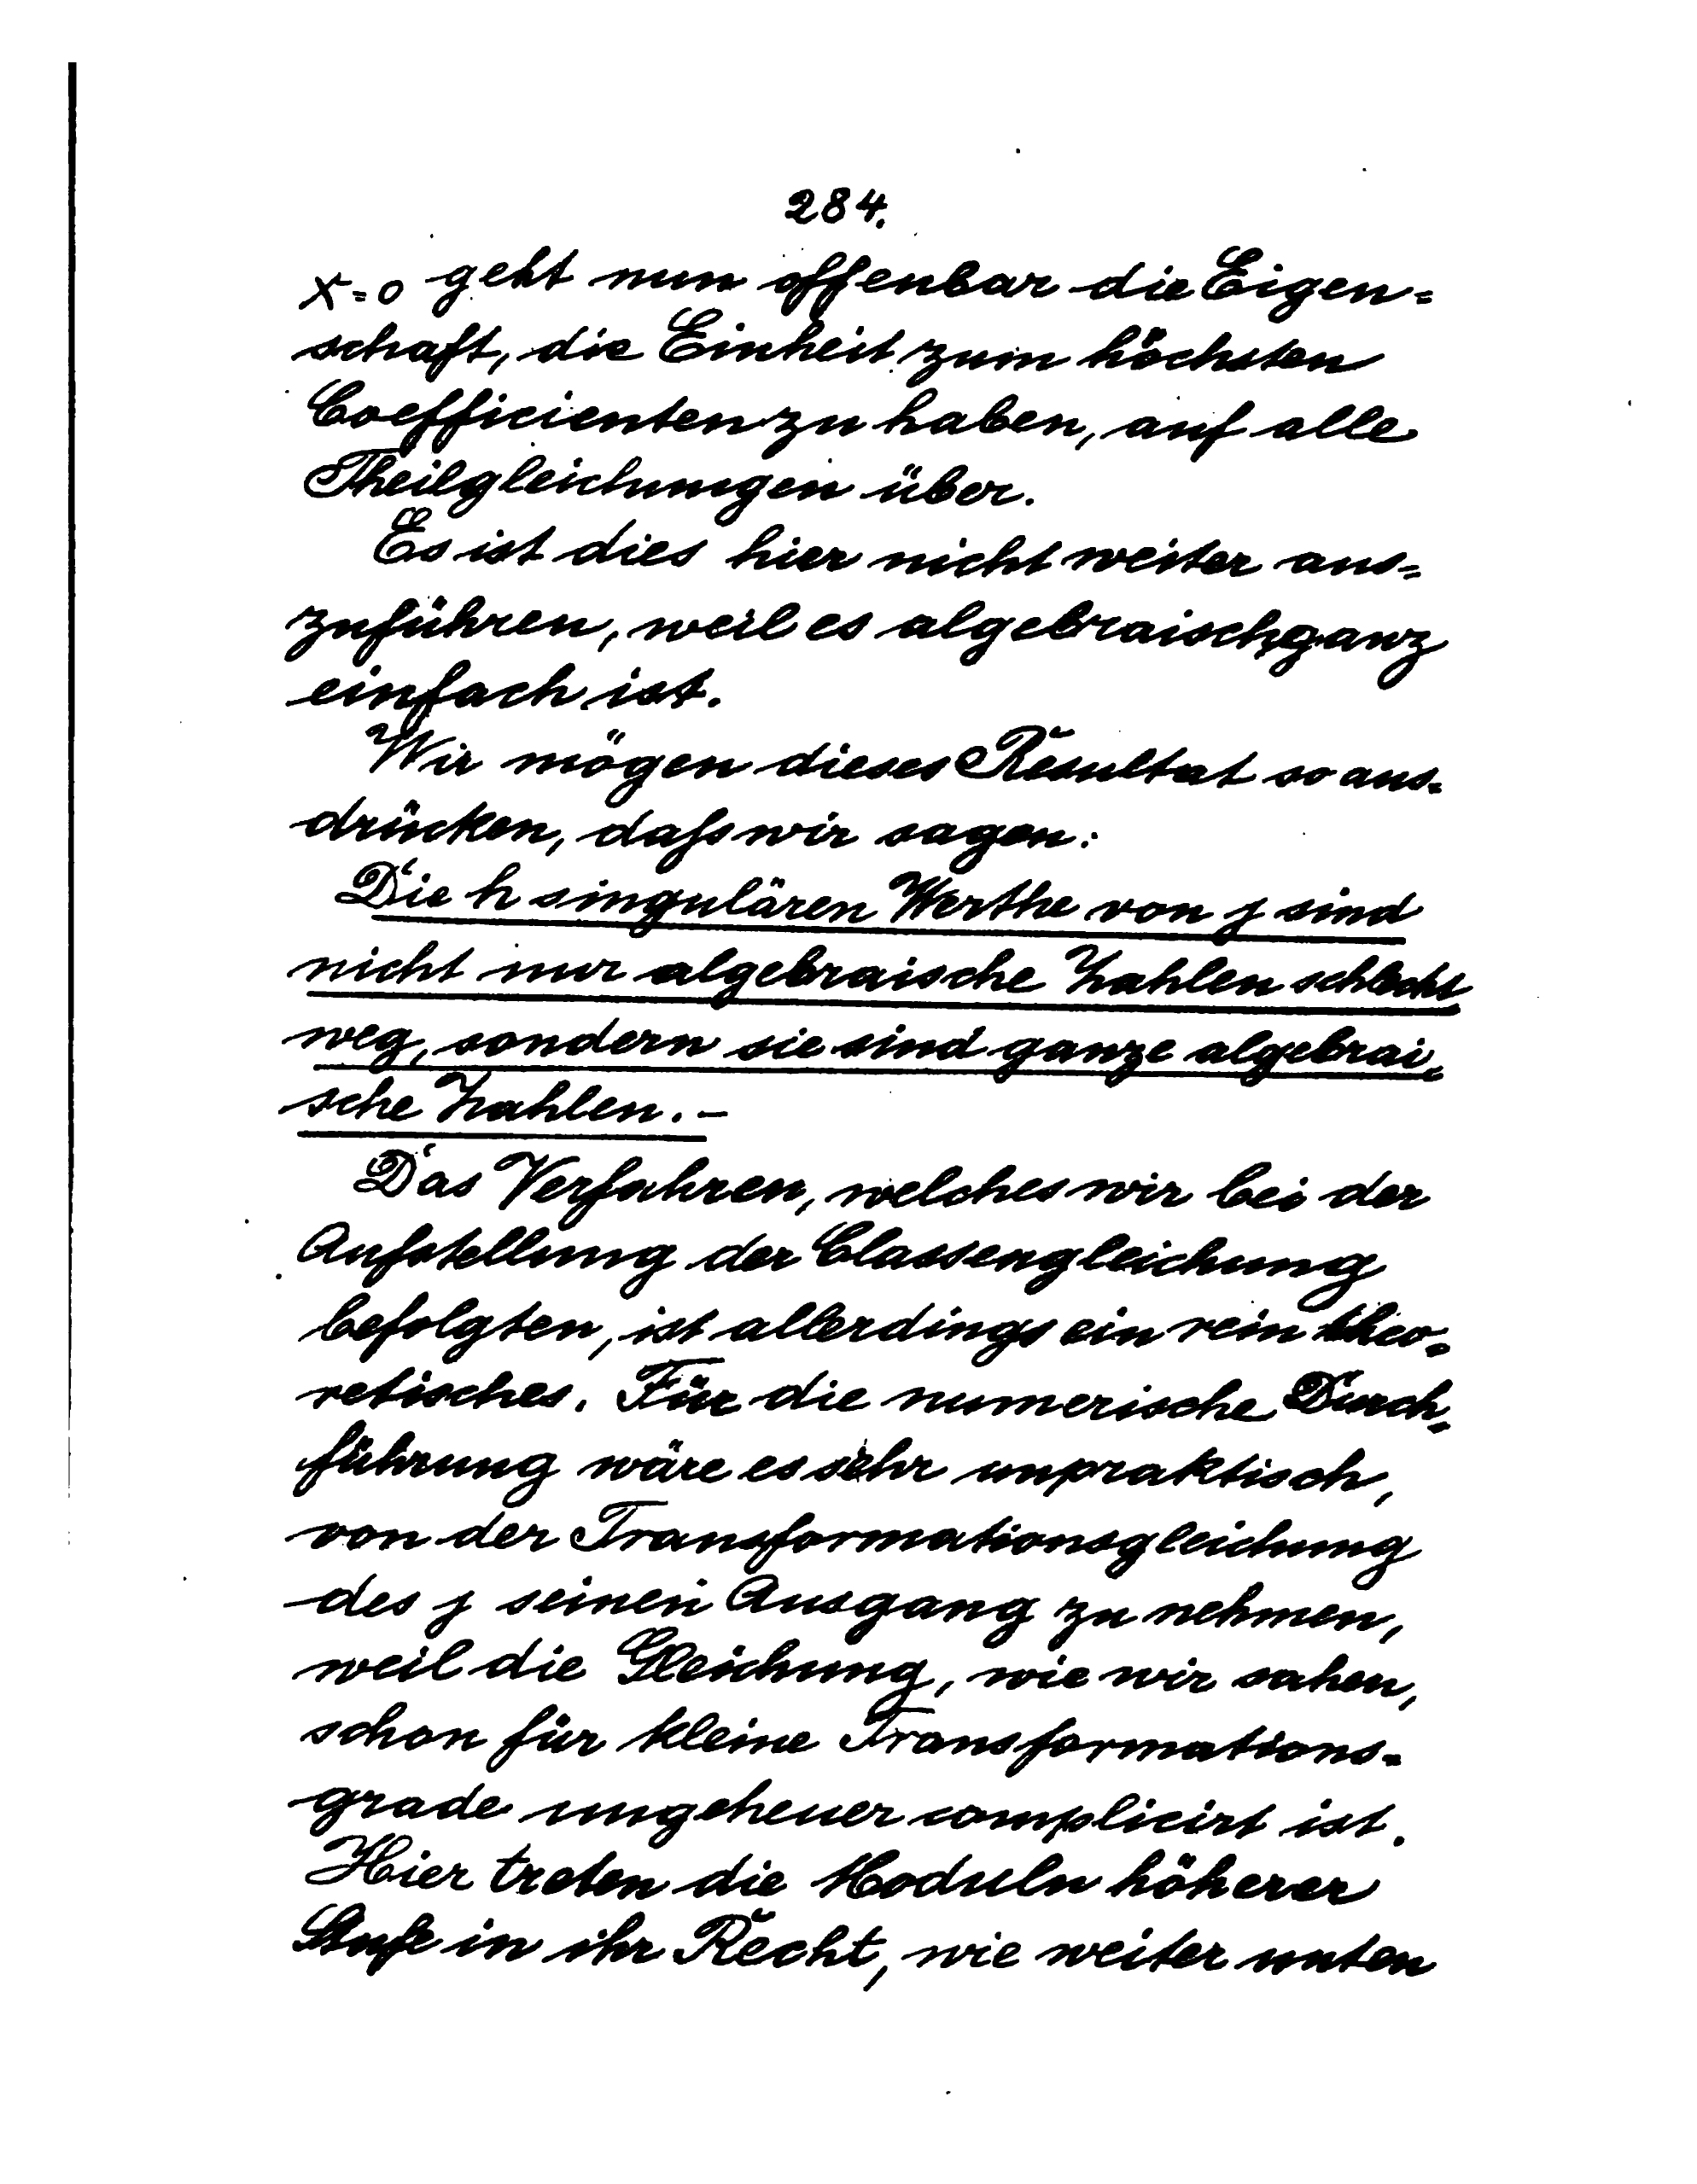 284.
X=0 geht nun offenbar die Eigen=
schaft, die Einheit zum höchsten
Coefficienten zu haben, auf alle
Theilgleichungen über.
Es ist dies hier nicht weiter aus=
zuführen, weil es algebraisch ganz
einfach ist.
Wir mögen dieses Resultat so aus=
drücken, daſs wir sagen:
Die h singulären Werthe von j sind
nicht nur algebraische Zahlen schlecht
weg, sondern sie sind ganze algebrai=
sche Zahlen. –
Das Verfahren, welches wir bei der
Aufstellung der Classengleichung
befolgten, ist allerdings ein rein theo=
retisches. Für die numerische Durch=
führung wäre es sehr unpraktisch,
von der Transformationsgleichung
des j seinen Ausgang zu nehmen,
weil die Gleichung, wie wir sahen,
schon für kleine Transformations=
grade ungeheuer complicirt ist.
Hier treten die Moduln höherer
Stufe in ihr Recht, wie weiter unten